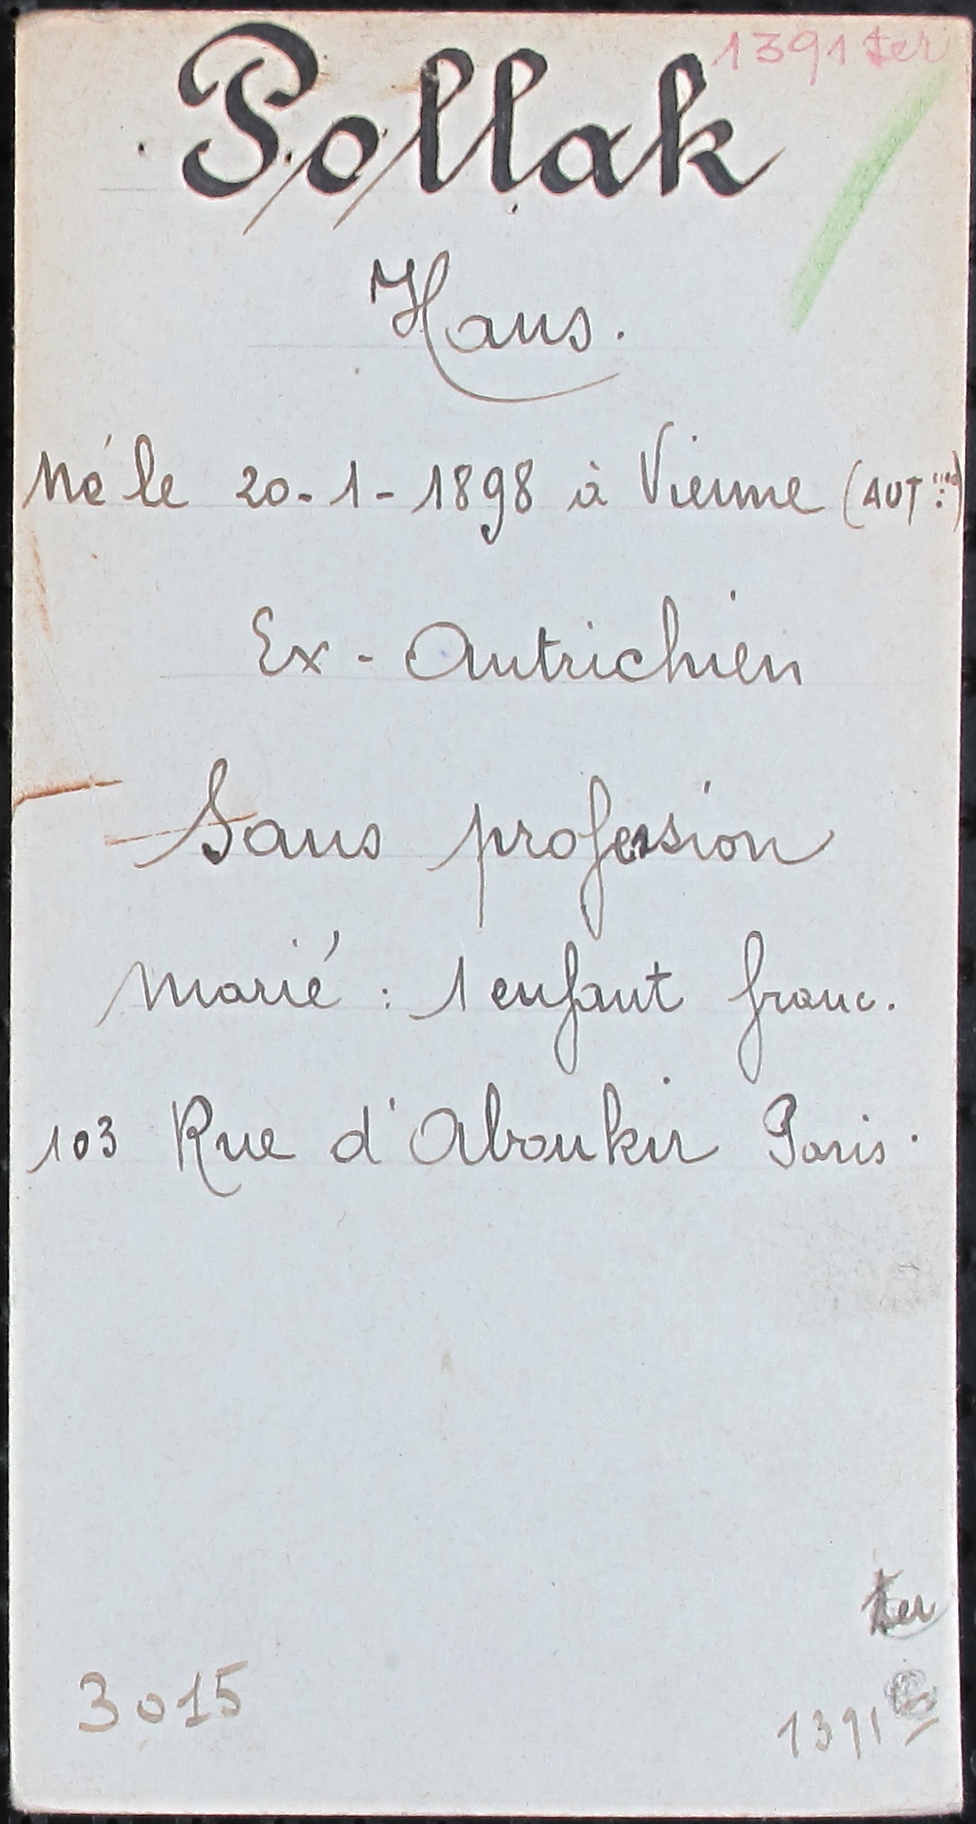 1391 ter
Pollak
Hans.
Né le 20-1-1898 à Vienne (AUT
Ex-Autrichien
Sans profession
Marié : 1 enfant franc.
103 Rue d'Aboukir Paris.
ter
3015
1391